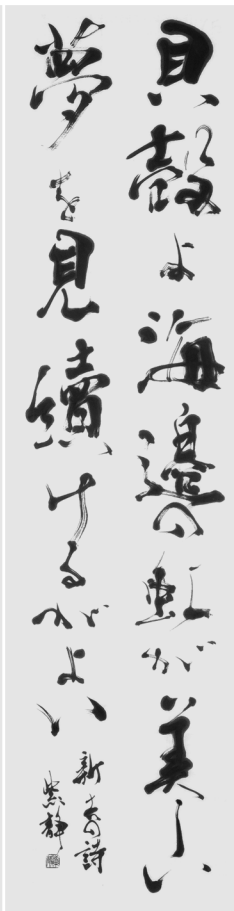 貝殻よ海邉の虹が美しい
夢を見續けるがよい
新春の詩
紫靜